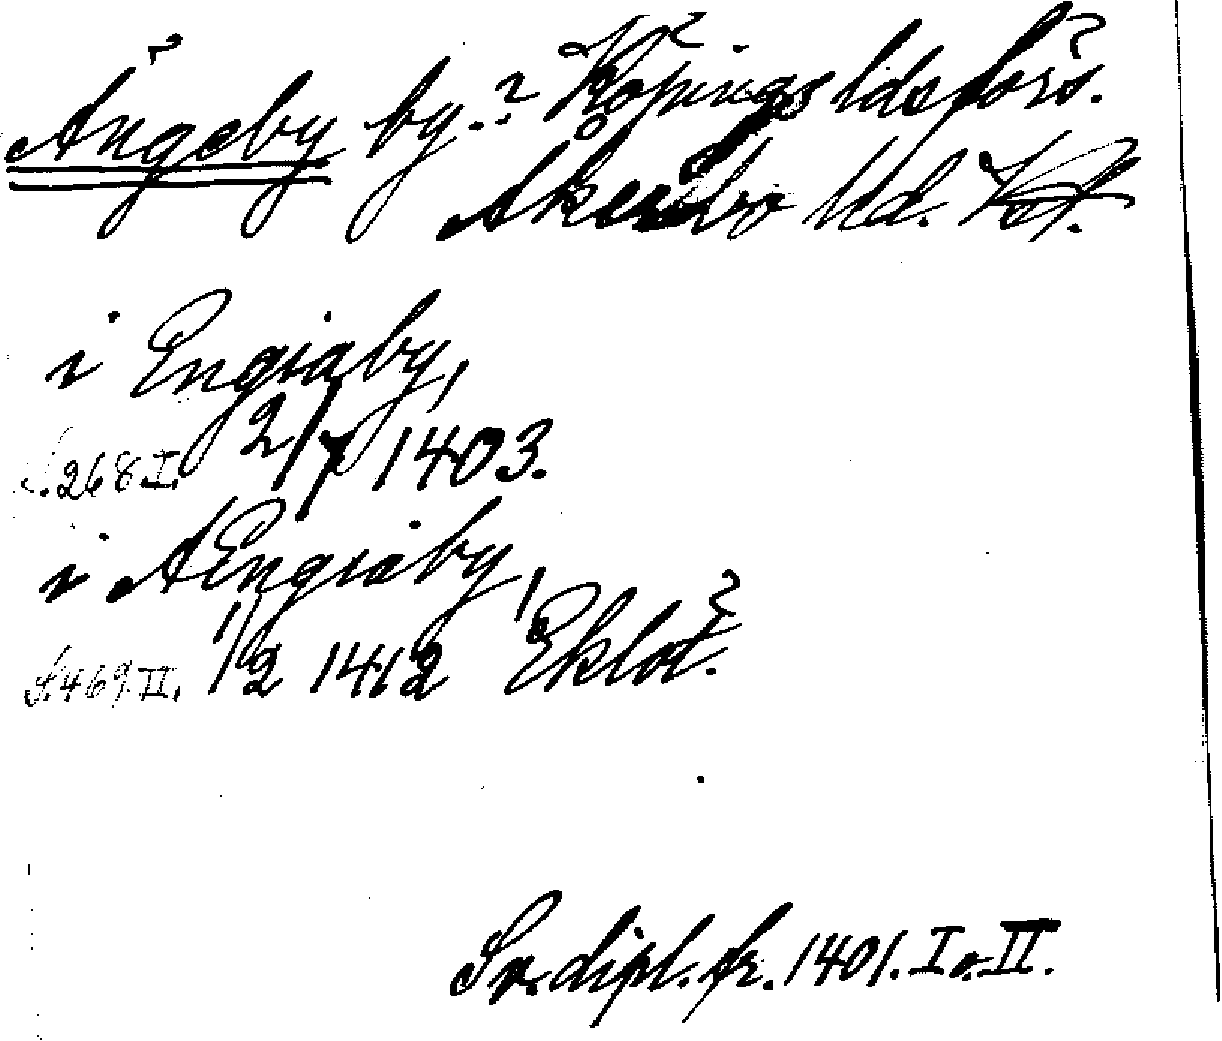 Ängeby by.? Köpings ldsförs.
Åkerbo hd. Vstm.
i Engiaby,
S. 268 I. 2/7 1403.
i AEngiaby,
S. 469 II. 1/2 1412 Eklöt.
Sv. dipl. fr. 1401. I o. II.